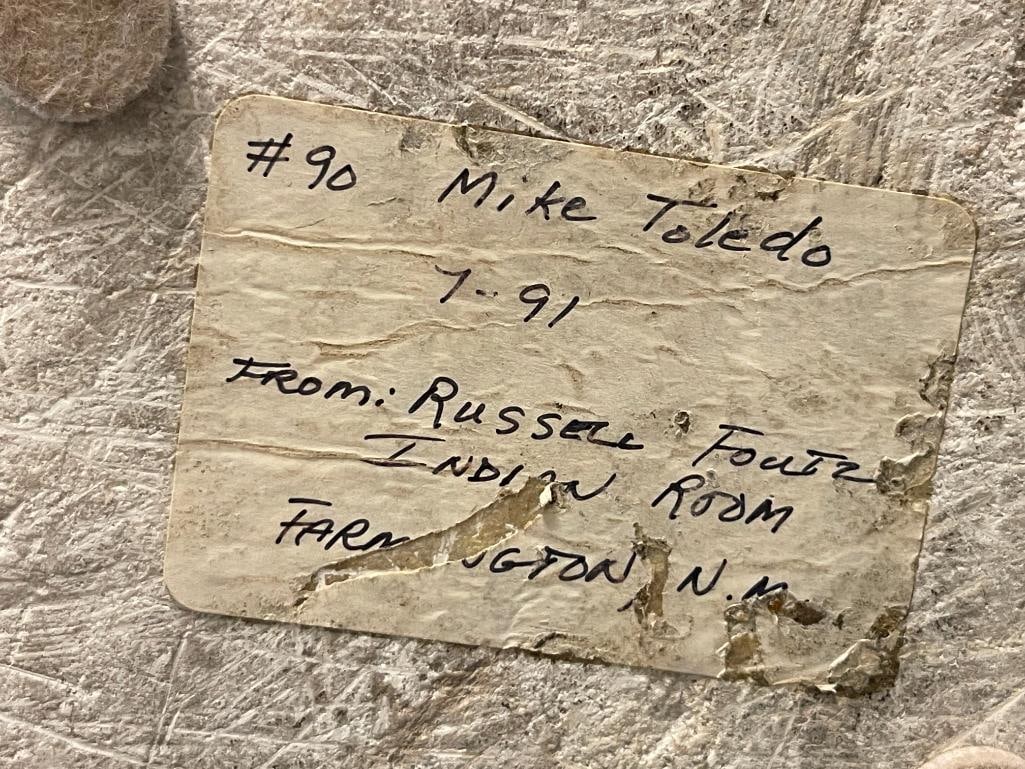 #90 Mike Toledo
7-91
FROM: RUSSELL FOUTZ
INDIAN ROOM
FARMINGTON, N.M.